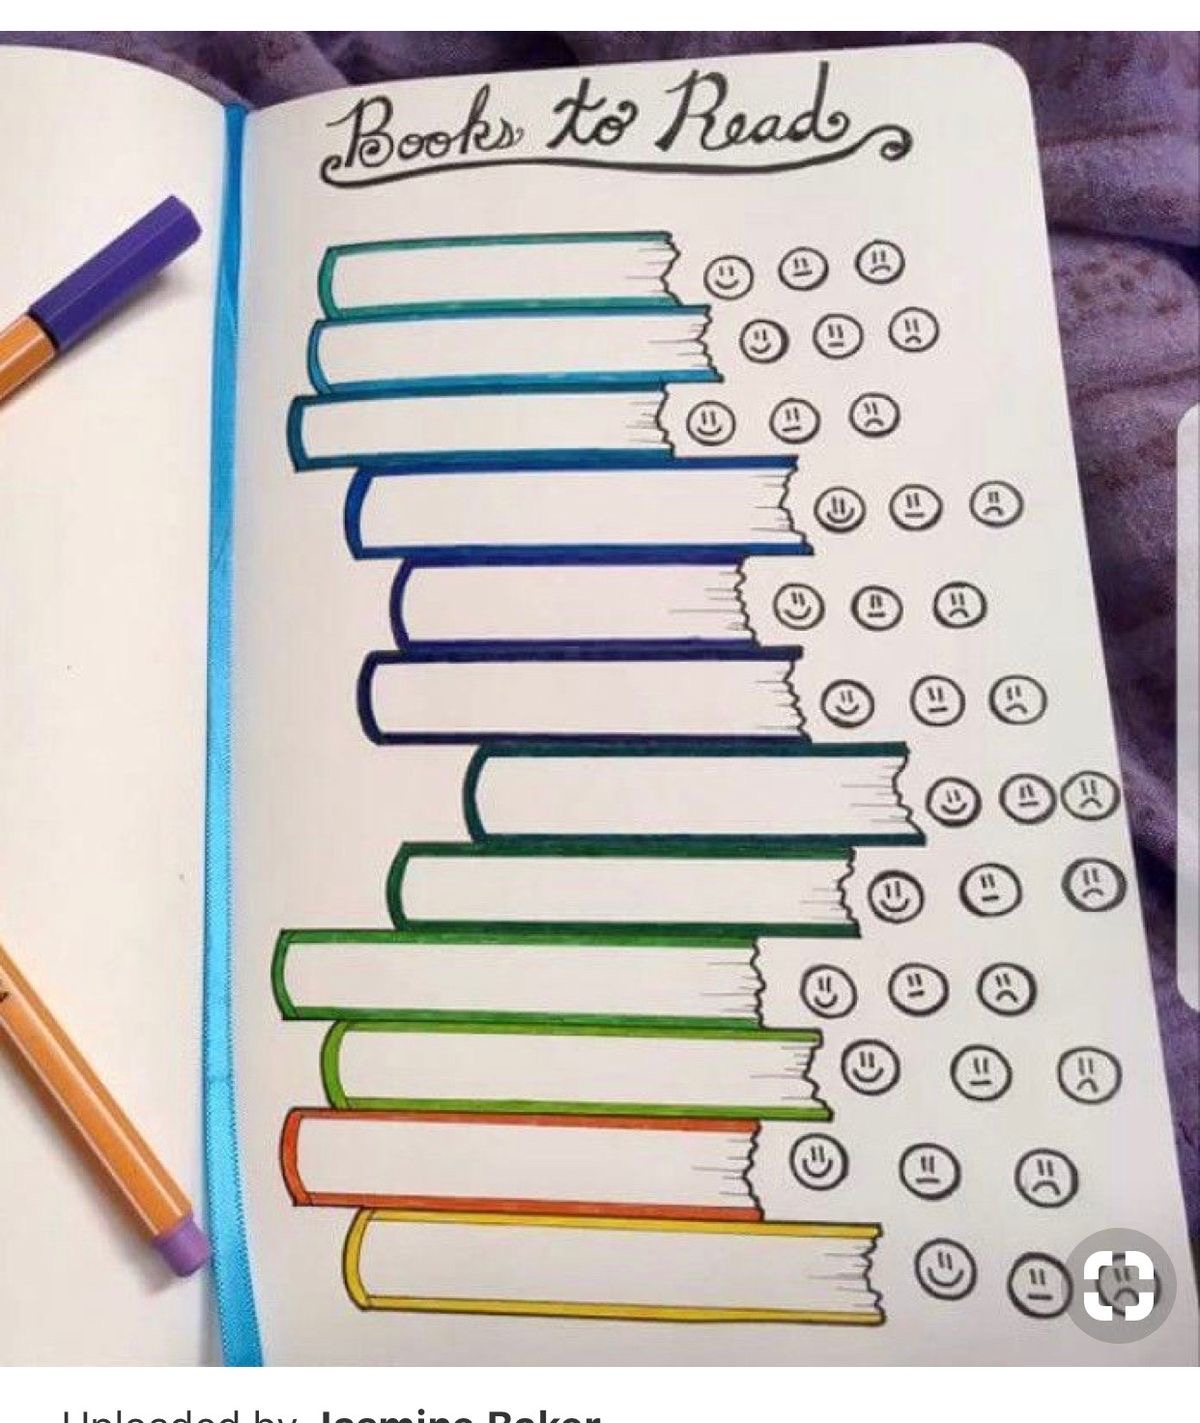 Books to Read
Uploaded by Jasmine Baker